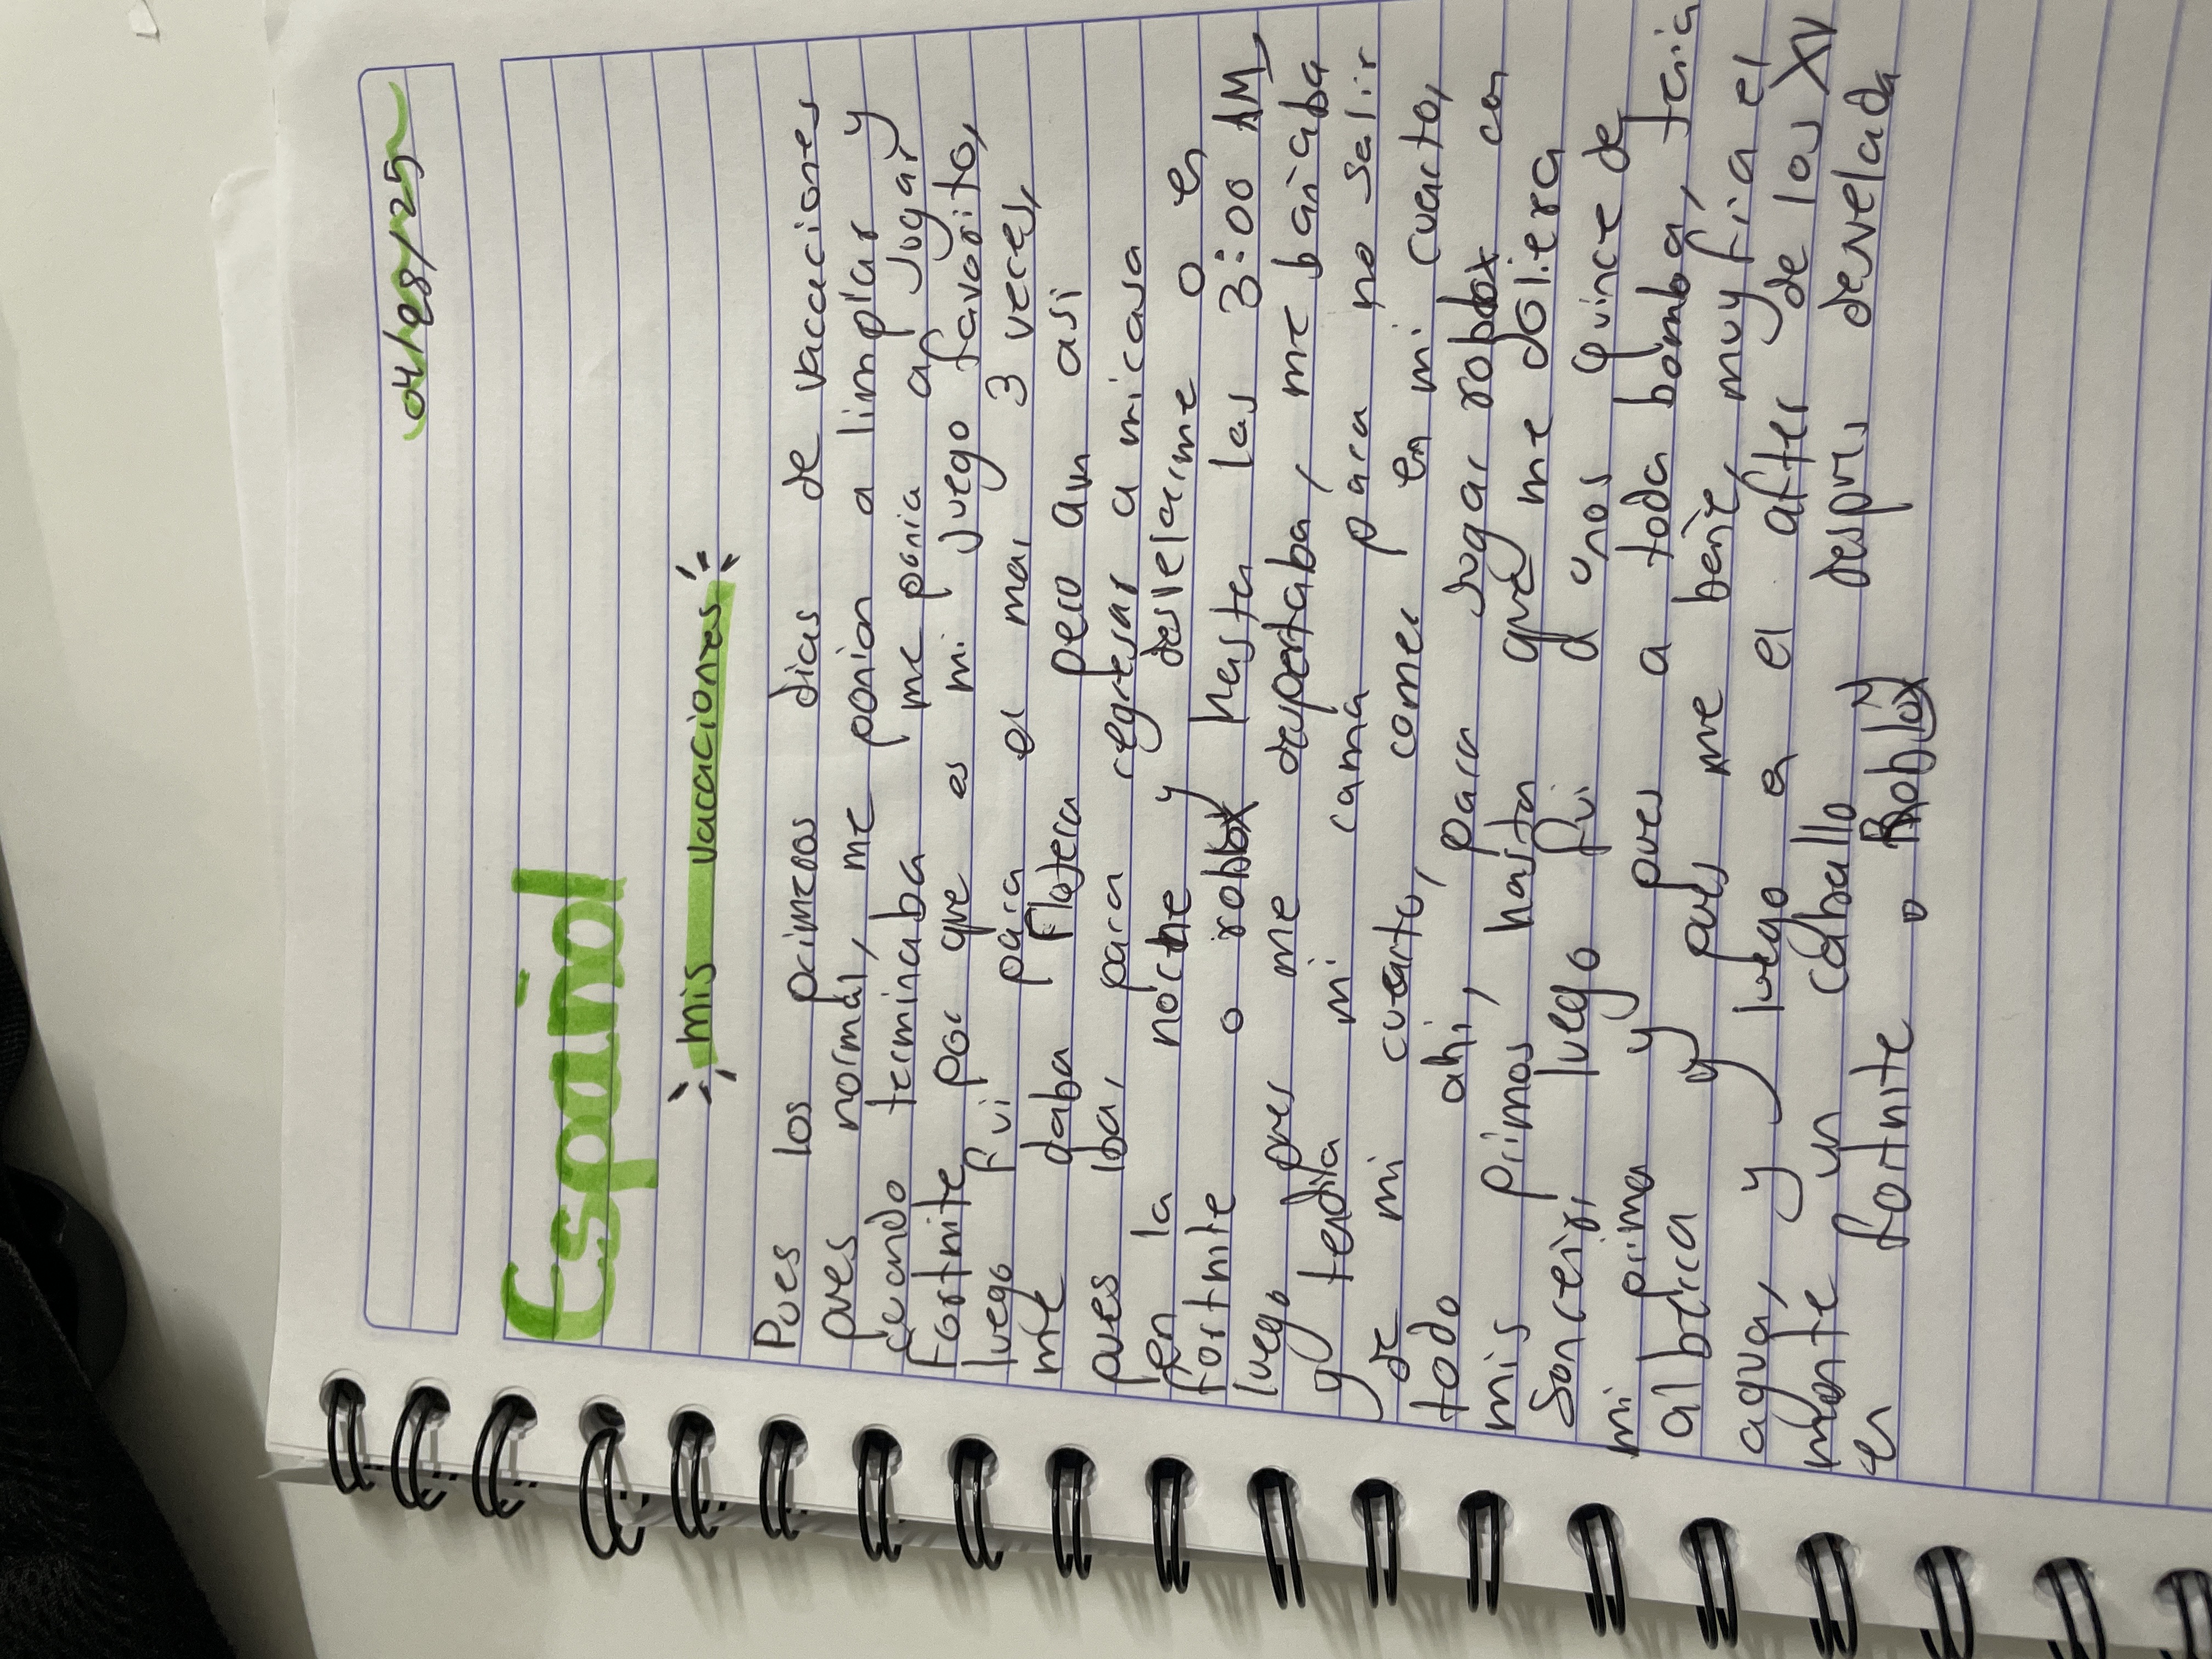 04/28/25
Español
mis vacaciones
Pues los primeros dias de vacaciones
pues normal, me ponian a limpiar y
cuando terminaba me ponia a jugar
Fortnite por que es mi juego favorito,
luego fui para el mar 3 veces,
me daba Flojera pero aun asi
pues iba, para regresar a mi casa
en la noche y desvelarme o en
fortnite o roblox hasta las 3:00 AM
luego pues me despertaba, me bañaba
y tendia mi cama para no salir
de mi cuarto, comer en mi cuarto,
todo ahi, para jugar roblox con
mis primos, hasta que me doliera
luego fui a unos Quince de
mi prima y pues a toda bomba, tenia
alberca y pues me bañe, muy fria el
agua, y luego en el after de los XV
monte un caballo despues desvelada
en fortnite o Roblox